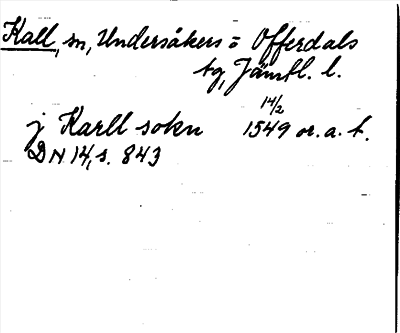 Kall, sn, Undersåkers = Offerdals
tg, Jämtl. l.
j Karll sokn 14/2 1549 or. a. t.
DN 14, s. 843